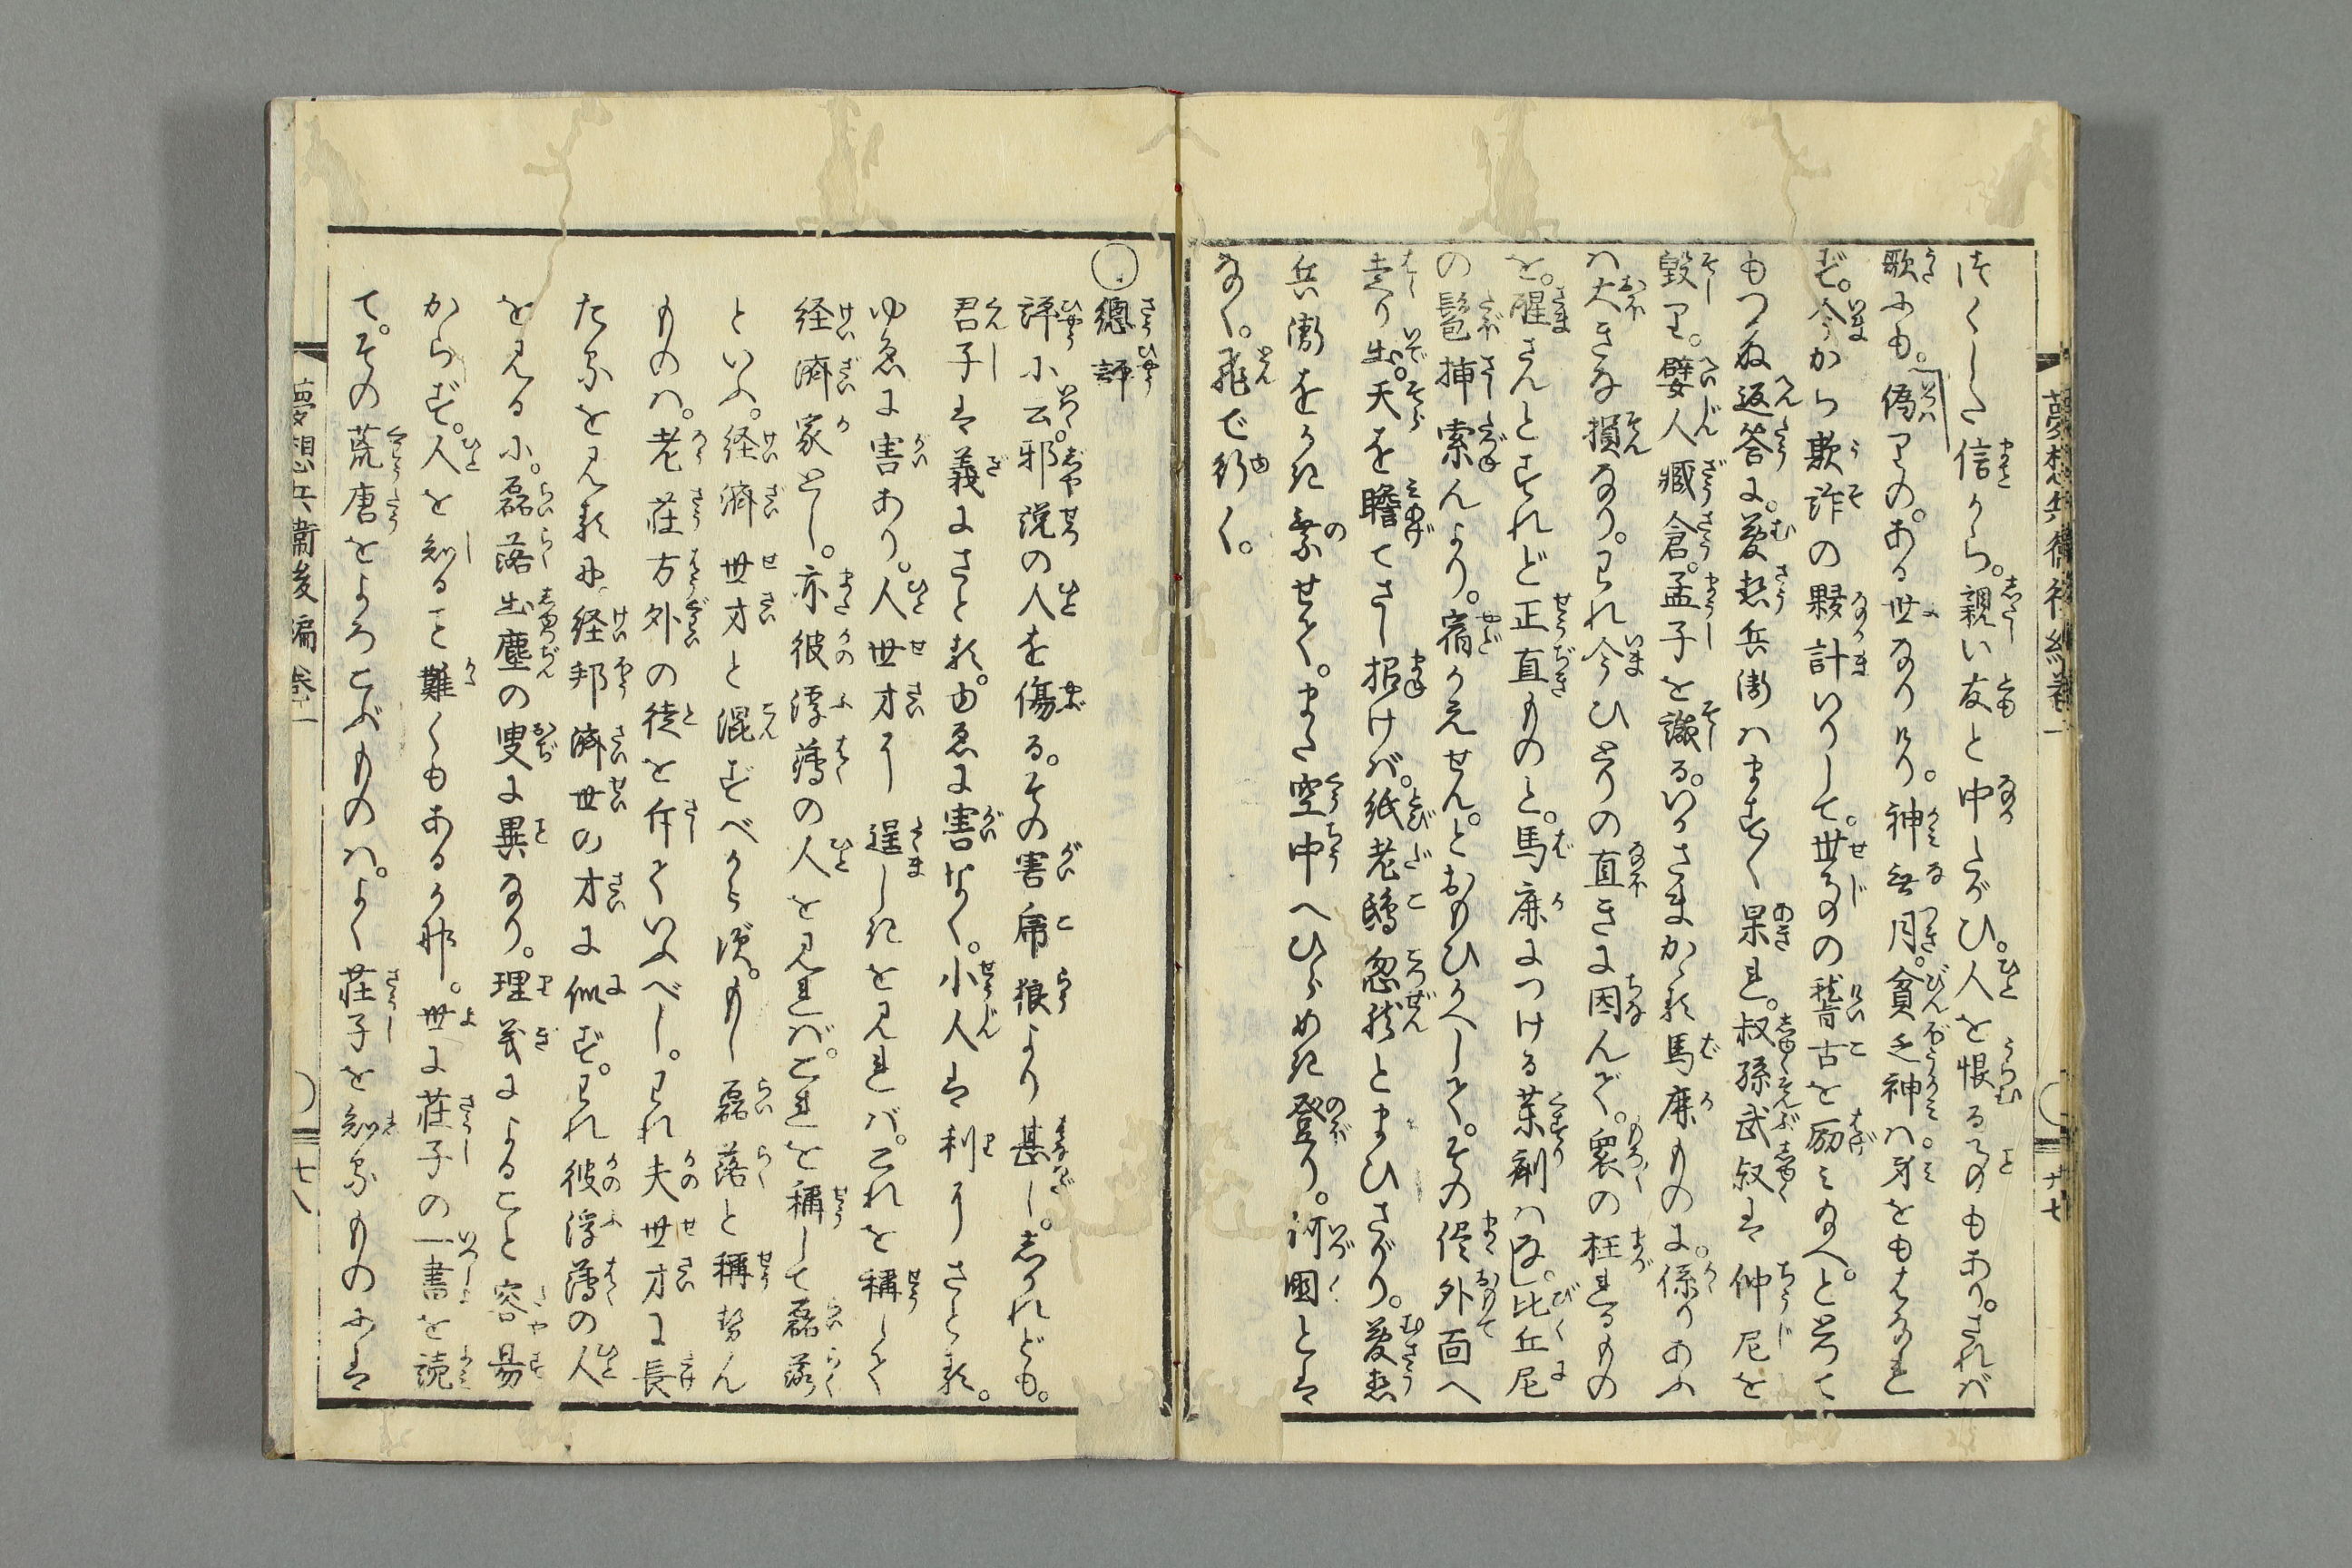 はくした信から。親い友と中たがひ。人を恨るゝのもあり。されば
歌にも。偽りの。ある世なりけり。神無月。貧乏神ハ。身をもはなれ
ず。今から欺詐の夥計いりして。世の稽古を励みなへ。と告て
もつぬ返答に。夢想兵衛ハますます呆れ。叔孫武叔は仲尼を
毀り。嬖人臧倉。孟子を譏る。いかさまかゝる馬鹿ものに。係りあふ
ハ大きな損なり。われ今ひとりの直きに因んで。衆の枉れるもの
を。醒さんとすれど正直ものと。馬鹿につける薬剤ハなし。比丘尼
の髱挿索んより。宿かえせん。とおもひかへして。その侭外面へ
走り出。天を瞻てさし招けば。紙老鴟忽然とまひさがり。夢想
兵衛をかき乗せて。また空中へひらめき登り。訶国とは
なく。飛で行く。
夢想兵衛後編巻一
十七
總評
評に云。邪説の人を傷る。その害虎狼より甚し。しかれども。
君子は義にさとる。ゆゑに害なく。小人は利にさとる。
ゆゑに害あり。人世才に逞しきを見れバ。これを稱して
経済家とし。亦彼浮薄の人を見れば。これを稱して磊落
といふ。経済世才と混ずべからず。もし磊落と稱せん
ものハ。老荘方外の徒を斥ていふべし。われ夫世才に長
たるを見るに。経邦済世の才に似ず。われ彼浮薄の人
を見るに。磊落出塵の叟に異なり。理義によること容易
からず。人を知ること難くもあるかな。世に荘子の一書を読
て。その荒唐をよろこぶものハ。よく荘子を知るものには
夢想兵衛後編巻一
十八